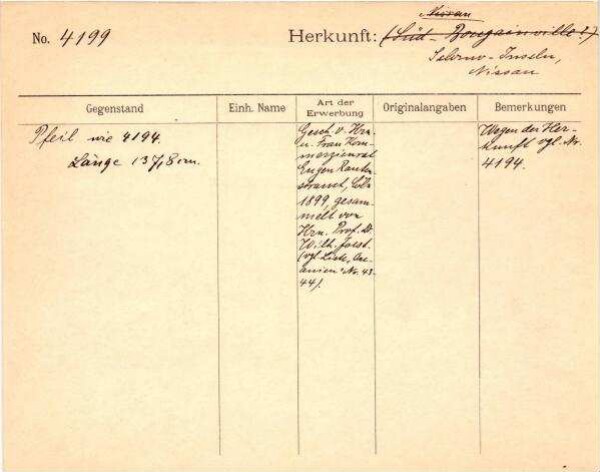 Nissan
No. 4199 Herkunft: (Süd-Bougainville?)
Salomo-Inseln,
Nissan
Gegenstand Einh. Name Art der Erwerbung Originalangaben Bemerkungen
Pfeil wie 4194.
Länge 137,8 cm.
Gesch. v. Hrn.
u. Frau Kom-
merzienrat
Eugen Rauten-
strauch, Cöln
1899, gesam-
melt von
Hrn. Prof. Dr.
Wilh. Joest.
(vgl. Liste, Oze-
anien Nr. 43.
44).
Wegen der Her-
kunft vgl. Nr.
4194.